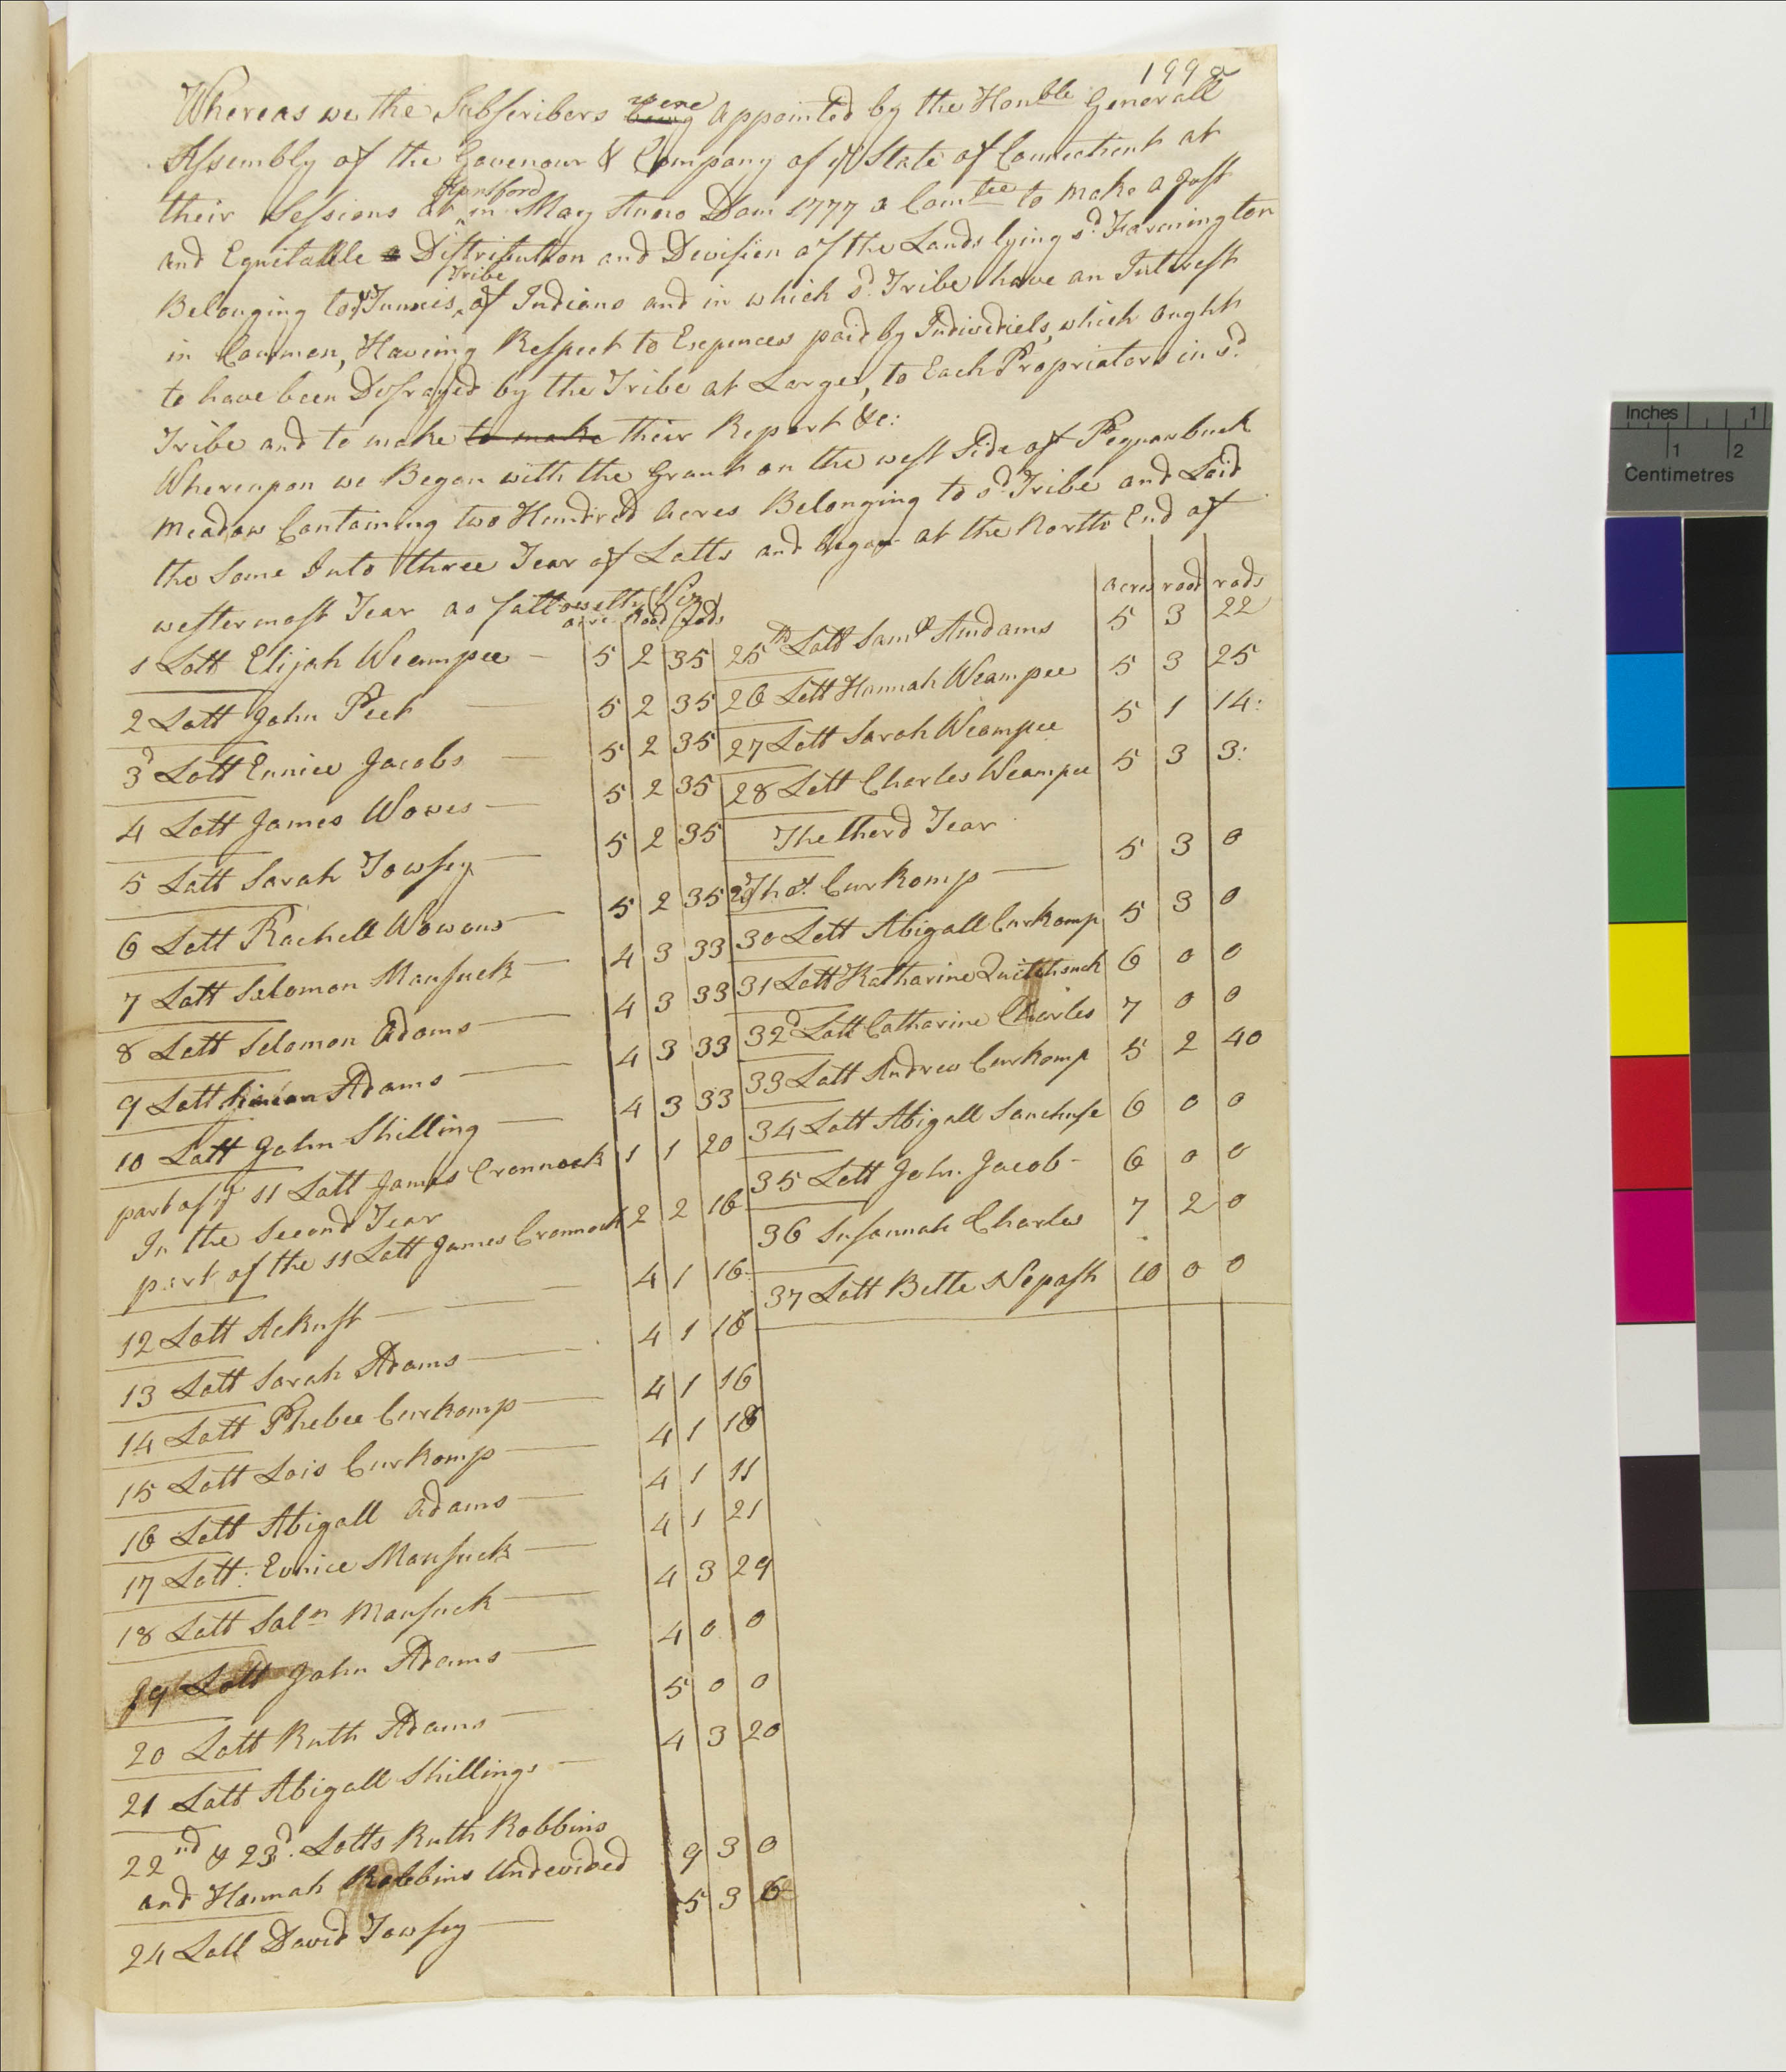 199 a
Whereas we the Subscribers were being Appointed by the Honble Generall
Assembly of the Govenour & Company of ye State of Connecticut at
their Sessions at Hartford in May Anno Dom 1777 a Comtee to make a Just
and Equitable a Distribution and Devision of the Lands lying sd. Farmington
Belonging to ye Tunxis Tribe of Indians and in which sd. Tribe have an Interest
in Common, Having Respect to Expences paid by Individiels, which ought
to have been Defrayed by the Tribe at Large, to Each Propriators in sd.
Tribe and to make to make their Report &c:
Whereupon we Began with the Grant on the west Side of Pequarbuck
Meadow Containing two Hundred acres Belonging to sd. Tribe and Laid
the Same Into three Tear of Lotts and began at the North End of
westermost Tear as followeth (Viz)
acre Rood Rods
1 Lott Elijah Wimpee – 5 2 35
2 Lott John Peet – 5 2 35
3d Lott Eunice Jacobs – 5 2 35
4 Lott James Wowes – 5 2 35
5 Lott Sarah Towsey – 5 2 35
6 Lott Rachell Wowous – 5 2 35
7 Lott Solomon Mausuck – 4 3 33
8 Lott Solomon Adams – 4 3 33
9 Lott Adams – 4 3 33
10 Lott John Shilling – 4 3 33
part of ye 11 Lott James Cronnock 1 1 20
In the Second Tear
part of the 11 Lott James Cronnock 2 2 16
12 Lott Ackust – 4 1 16
13 Lott Sarah Adams – 4 1 16
14 Lott Phebee Curkomp – 4 1 16
15 Lott Lois Curkomp – 4 1 18
16 Lott Abigall Adams – 4 1 11
17 Lott: Eunice Mausuck – 4 1 21
18 Lott Saln Mausuck – 4 3 29
19 Lott John Adams – 4 0 0
20 Lott Ruth Adams – 5 0 0
21 Lott Abigall Shillings – 4 3 20
22nd & 23d. Lotts Ruth Robbins
and Hannah Robbins Undevided 9 3 0
24 Lott David Towsey – 5 3 6
acres rood rods
25th Lott Saml Addams 5 3 22
26 Lott Hannah Wimpee 5 3 25
27 Lott Sarah Wimpee 5 1 14:
28 Lott Charles Wimpee 5 3 3:
The therd Tear
29 Thos. Curkomp – 5 3 0
30 Lott Abigall Curkomp 5 3 0
31 Lott Katharine 6 0 0
32d Lott Catharine Charles 7 0 0
33 Lott Andrew Curkomp 5 2 40
34 Lott Abigall Sanchuse 6 0 0
35 Lott John Jacob - 6 0 0
36 Susannah Charles 7 2 0
37 Lott Bette Nepash 10 0 0
Inches 1
1 2
Centimetres